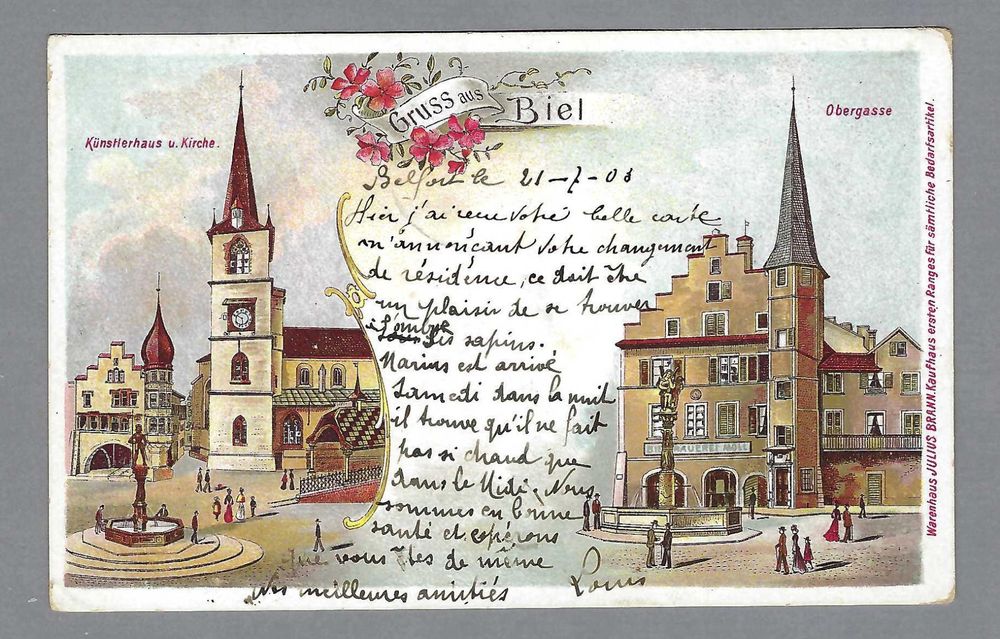 Künstlerhaus u. Kirche.
Gruss aus
Biel
Obergasse
Warenhaus JULIUS BRANN. Kaufhaus ersten Ranges für sämtliche Bedarfsartikel.
Belfort le 21-7-03
Hier j'ai reçu votre belle carte
m'annonçant votre changement
de résidence, ce doit être
un plaisir de se trouver
à l'ombre
des sapins.
Marius est arrivé
Samedi dans la nuit
il trouve qu'il ne fait
pas si chaud que
dans le Midi. Nous
sommes en bonne
santé et espérons
que vous êtes de même
Nos meilleures amitiés
Louis
BRAUEREI MOLL